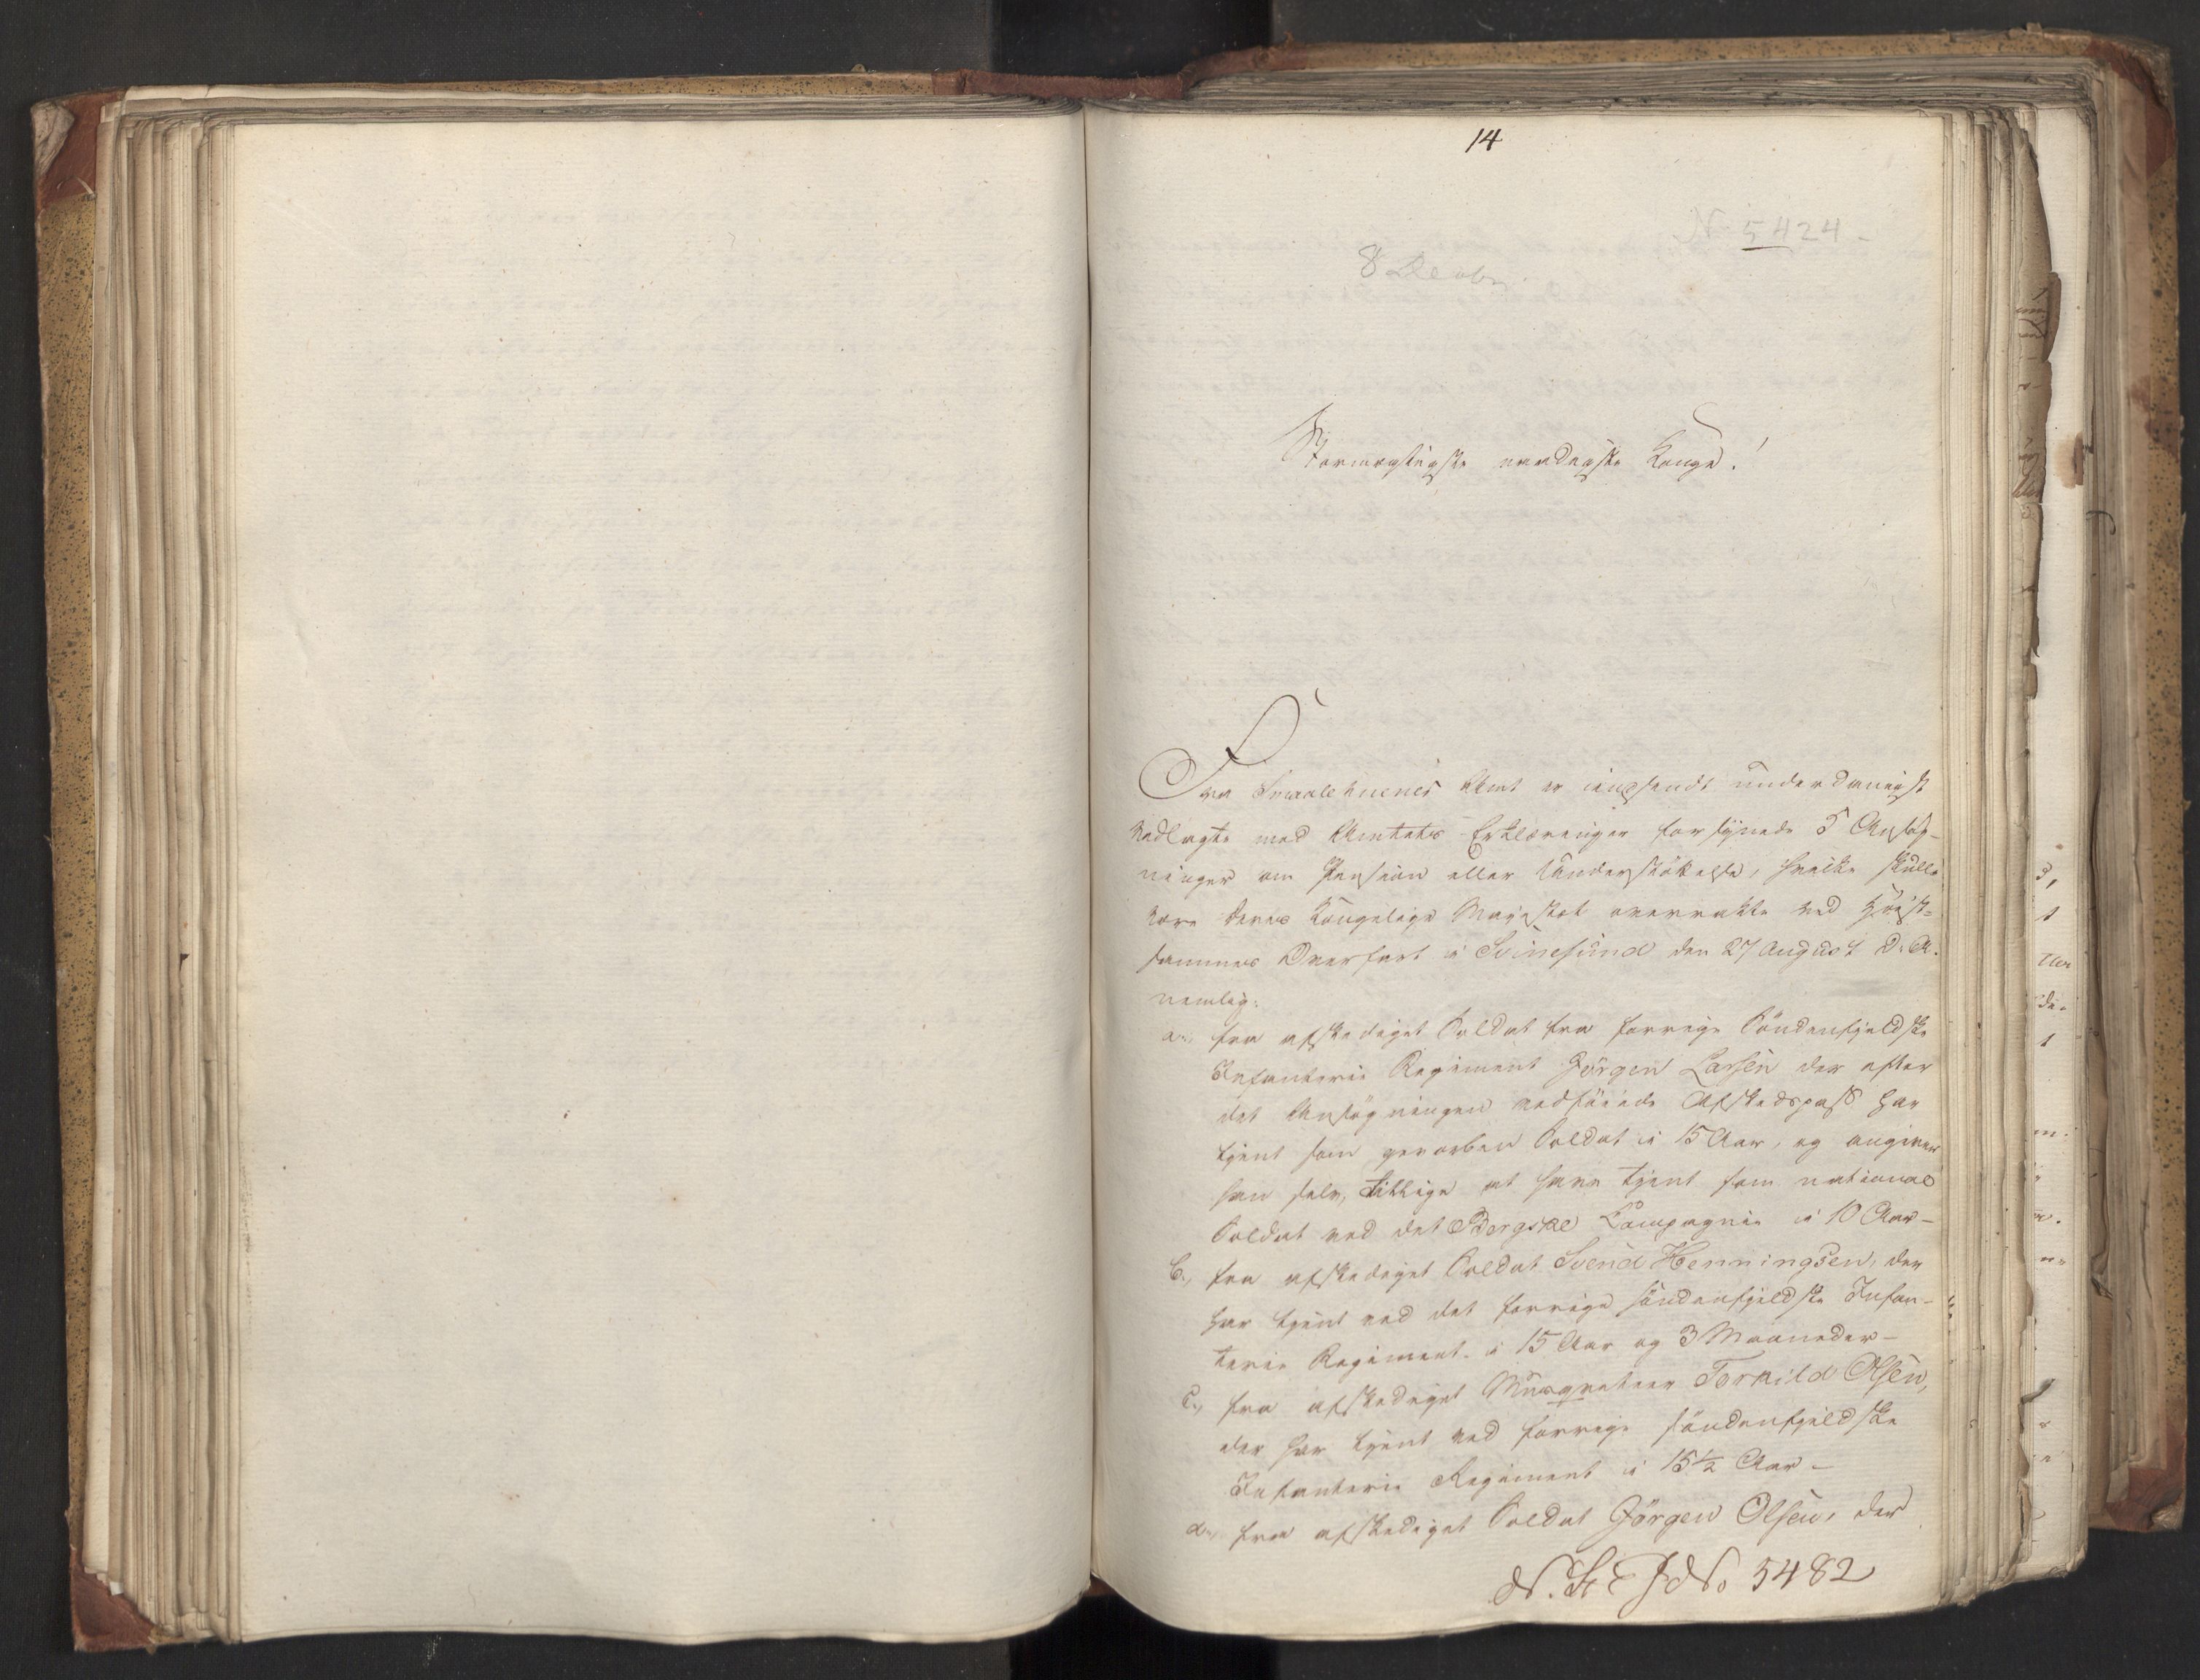 14
N. 5424 -
8 Decbr
Stormægtigste naadigste Konge!
Fra Smaalehnenes Amt er indsendt underdanigst
vedlagte med Amtets Erklæringer forsynede 5 Ansøg-
ninger om Pension eller Understöttelse, hvilke skulle
være Deres Kongelige Majestæt overrakte ved Høist-
sammes Overfart i Svinesund den 27 August d. A.
nemlig:
a., fra afskediget Soldat fra forrige Söndenfjeldske
Infanterie Regiment Jörgen Larsen der efter
det Ansögningen vedföiede Afskedspass har
tjent som gevorben Soldat i 15 Aar, og angiver
han selv, tillige at have tjent som national
Soldat ved det Bergske Compagnie i 10 Aar -
b., fra afskediget Soldat Svend Henningsen, der
har tjent ved det forrige söndenfjeldske Infan-
terie Regiment i 15 Aar og 3 Maaneder -
c., fra afskediget Musqueteer Torkild Olsen,
der har tjent ved forrige söndenfjeldske
Infanterie Regiment i 15½ Aar -
d., fra afskediget Soldat Jörgen Olsen, der
No 5482